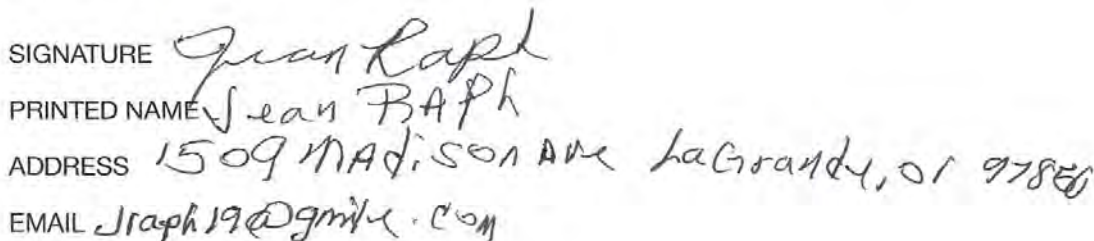 SIGNATURE Jean Raph
PRINTED NAME Jean RAPh
ADDRESS 1509 MADiSon Ave LaGrande, Or 97850
EMAIL Jraph19@gmile.com